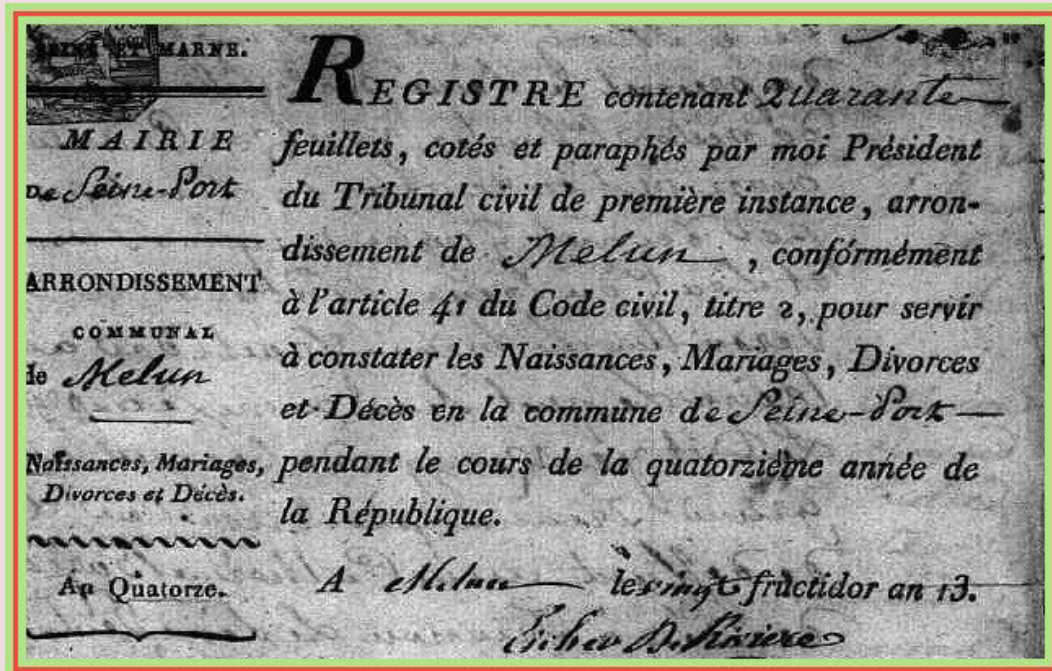 SEINE ET MARNE.
MAIRIE
De Seine-Port
ARRONDISSEMENT
COMMUNAL
de Melun
Naissances, Mariages,
Divorces et Décès.
An Quatorze.
REGISTRE contenant Quarante
feuillets, cotés et paraphés par moi Président
du Tribunal civil de première instance, arron-
dissement de Melun, conformément
à l'article 41 du Code civil, titre 2, pour servir
à constater les Naissances, Mariages, Divorces
et Décès en la commune de Seine-Port
pendant le cours de la quatorzième année de
la République.
A Melun le vingt fructidor an 13.